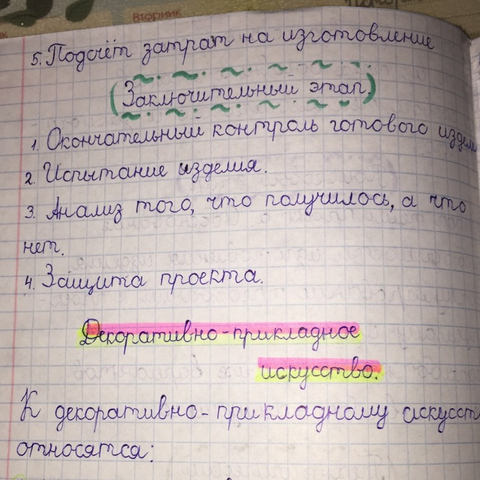 вторник
5. Подсчёт затрат на изготовление
(Заключительный этап.)
1. Окончательный контроль готового издели
2. Испытание изделия.
3. Анализ того, что получилось, а что
нет.
4. Защита проекта.
Декоративно-прикладное
искусство.
К декоративно-прикладному искусст
относятся: